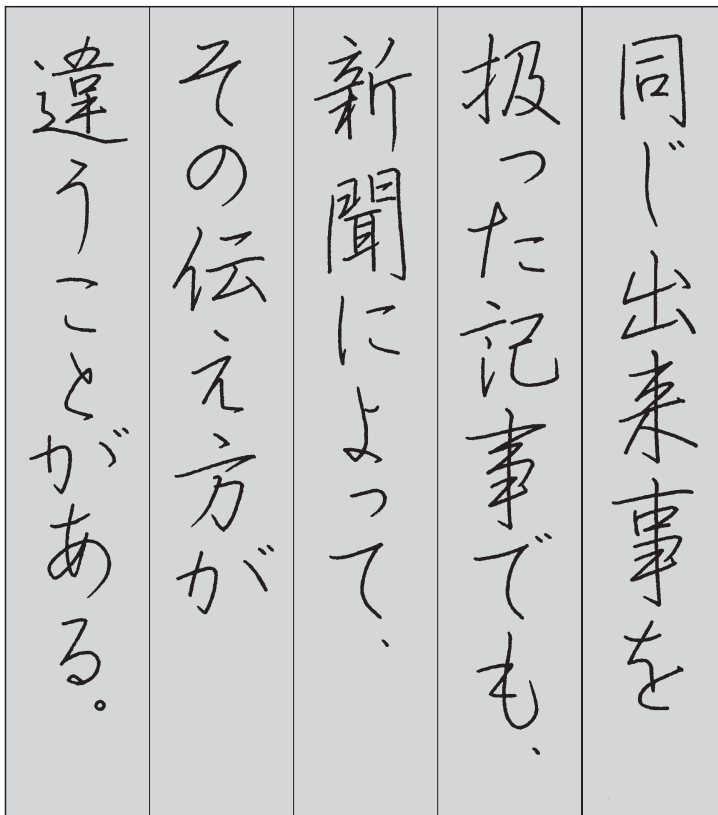 同じ出来事を
扱った記事でも、
新聞によって、
その伝え方が
違うことがある。